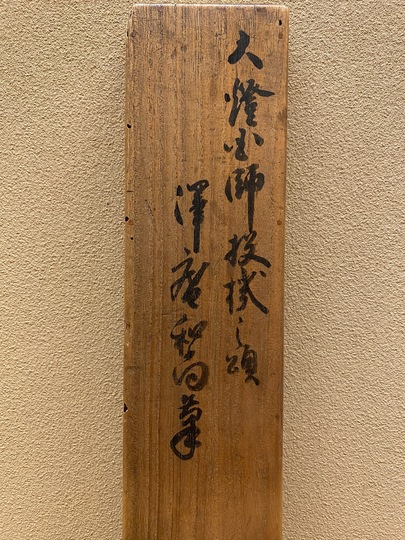 大燈国師投機之頌
澤庵和尚筆